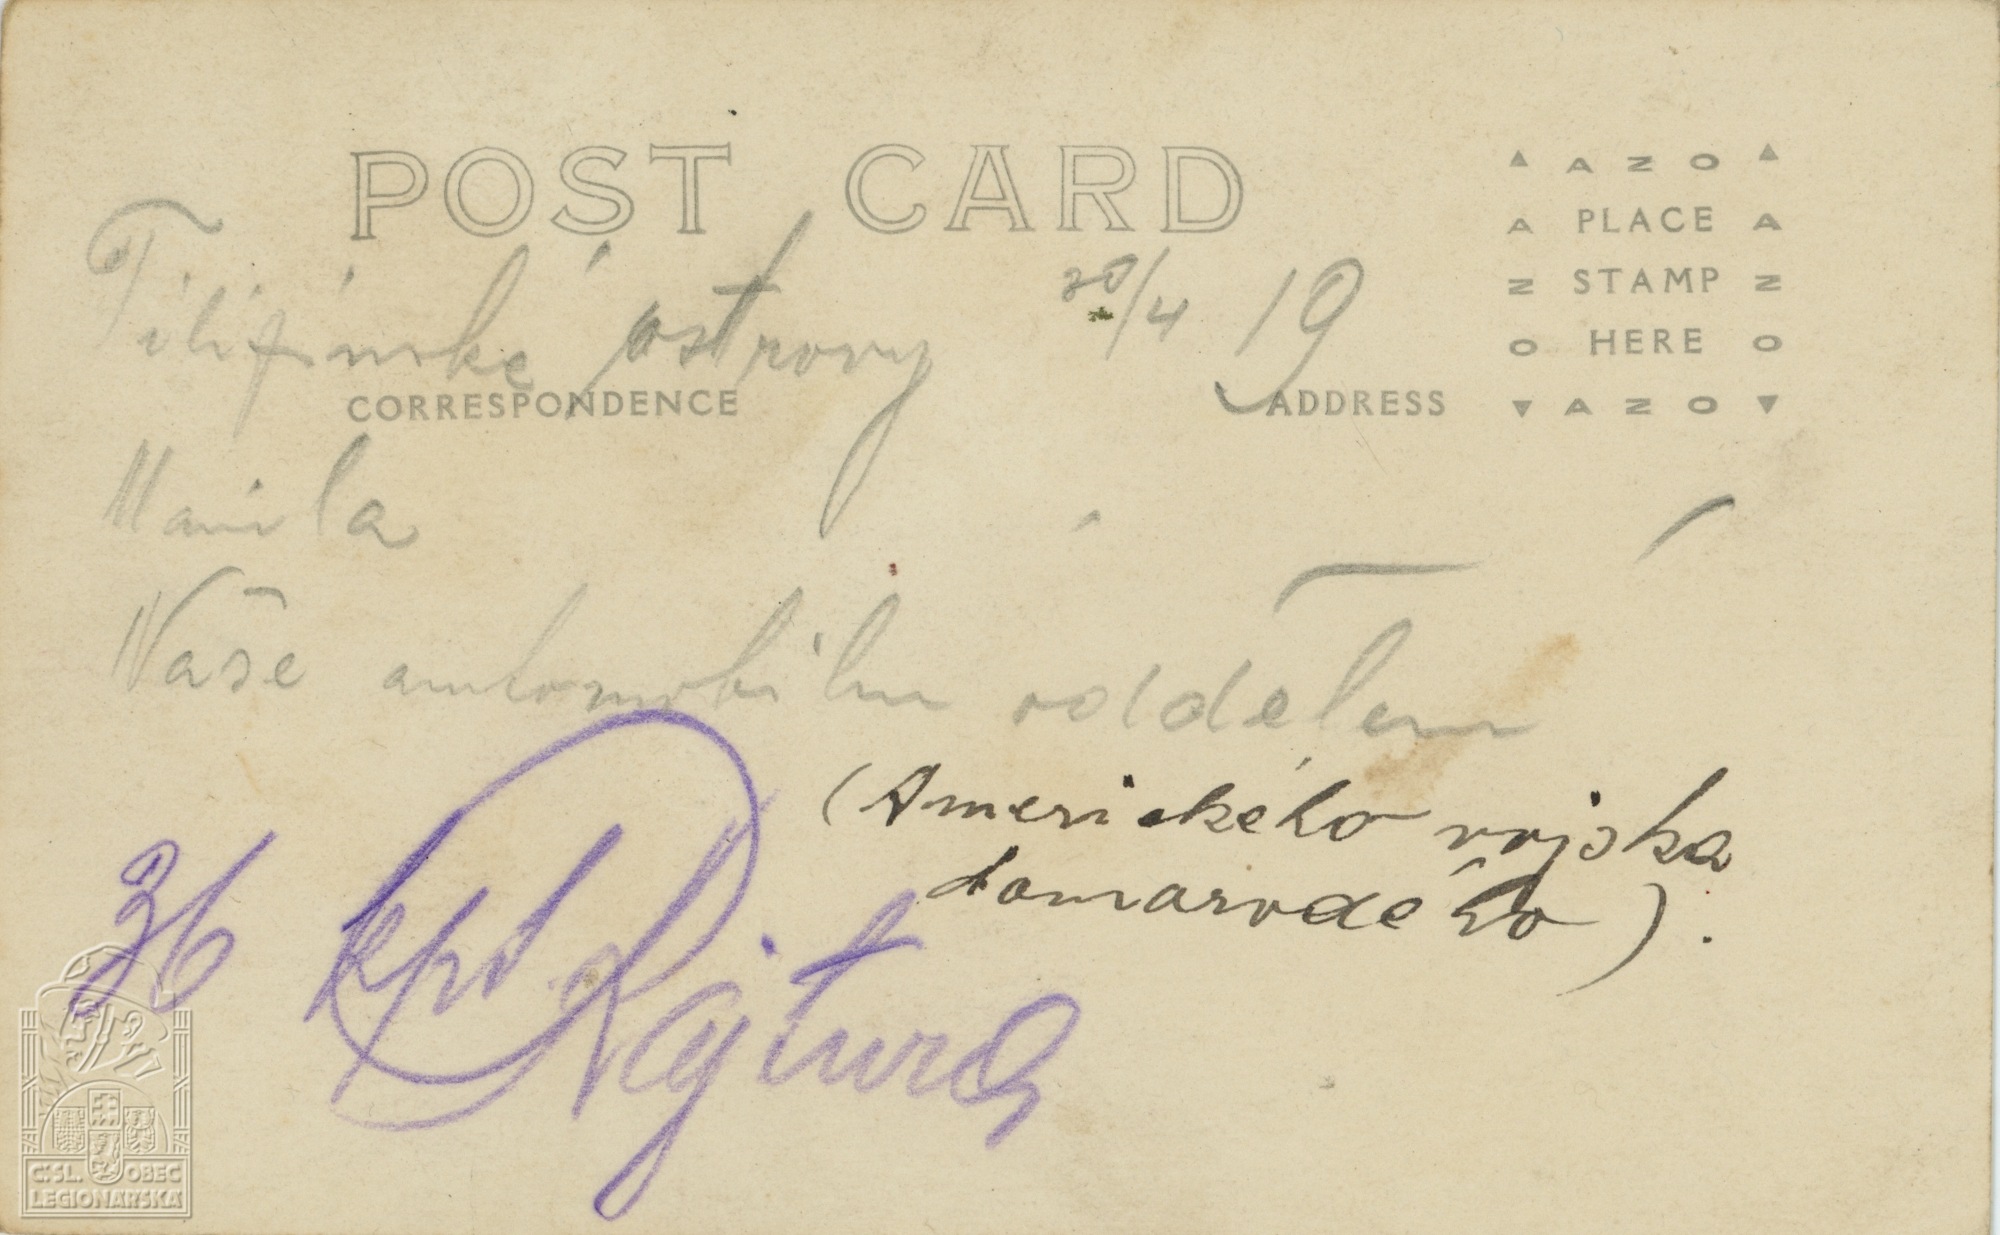 POST CARD
▲ AZO ▲
A PLACE A
N STAMP N
O HERE O
▼ AZO ▼
Filipínské ostrovy 20/4 19
CORRESPONDENCE
ADDRESS
Manila
Naše automobilní oddělení
(Amerického vojska
domarodého).
36 kpt. Rajtura
Č.SL. OBEC
LEGIONÁŘSKÁ